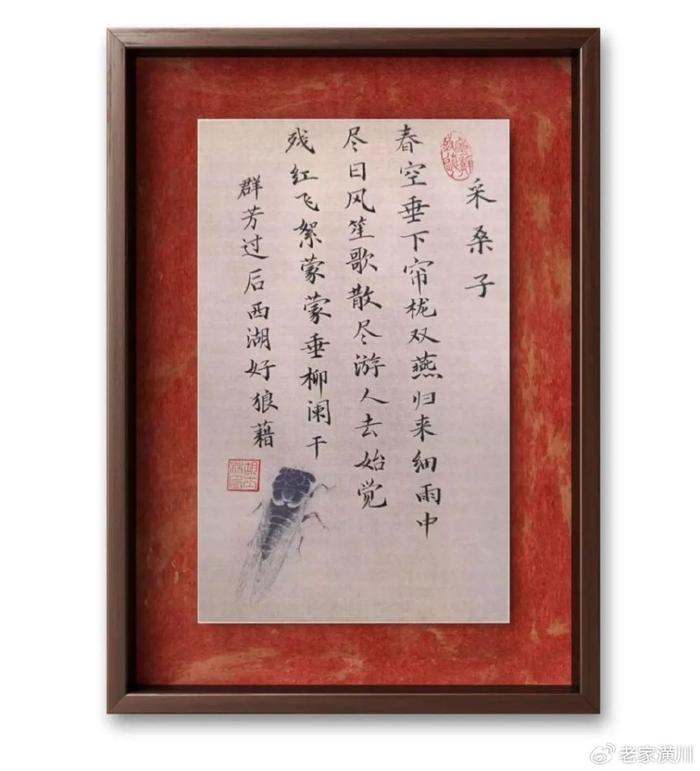 采桑子
春空垂下帘栊双燕归来细雨中
尽日风笙歌散尽游人去始觉
残红飞絮蒙蒙垂柳阑干
群芳过后西湖好狼藉
@老家潢川